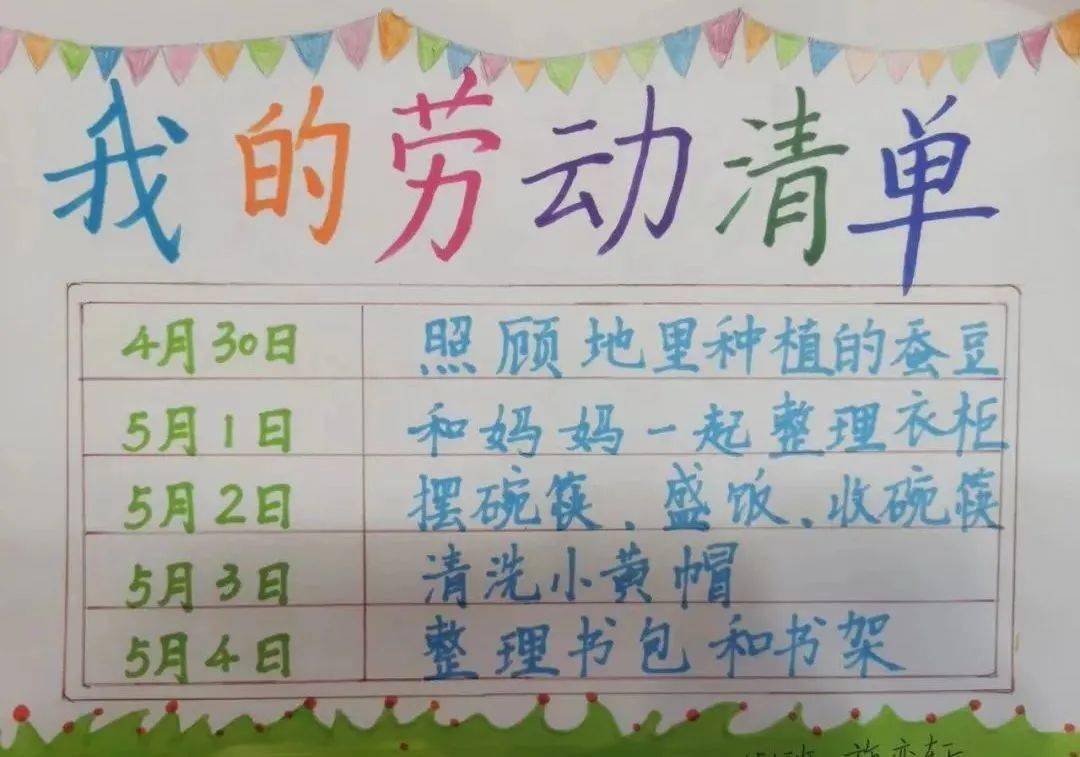 我的劳动清单
4月30日 照顾地里种植的蚕豆
5月1日 和妈妈一起整理衣柜
5月2日 摆碗筷、盛饭、收碗筷
5月3日 清洗小黄帽
5月4日 整理书包和书架